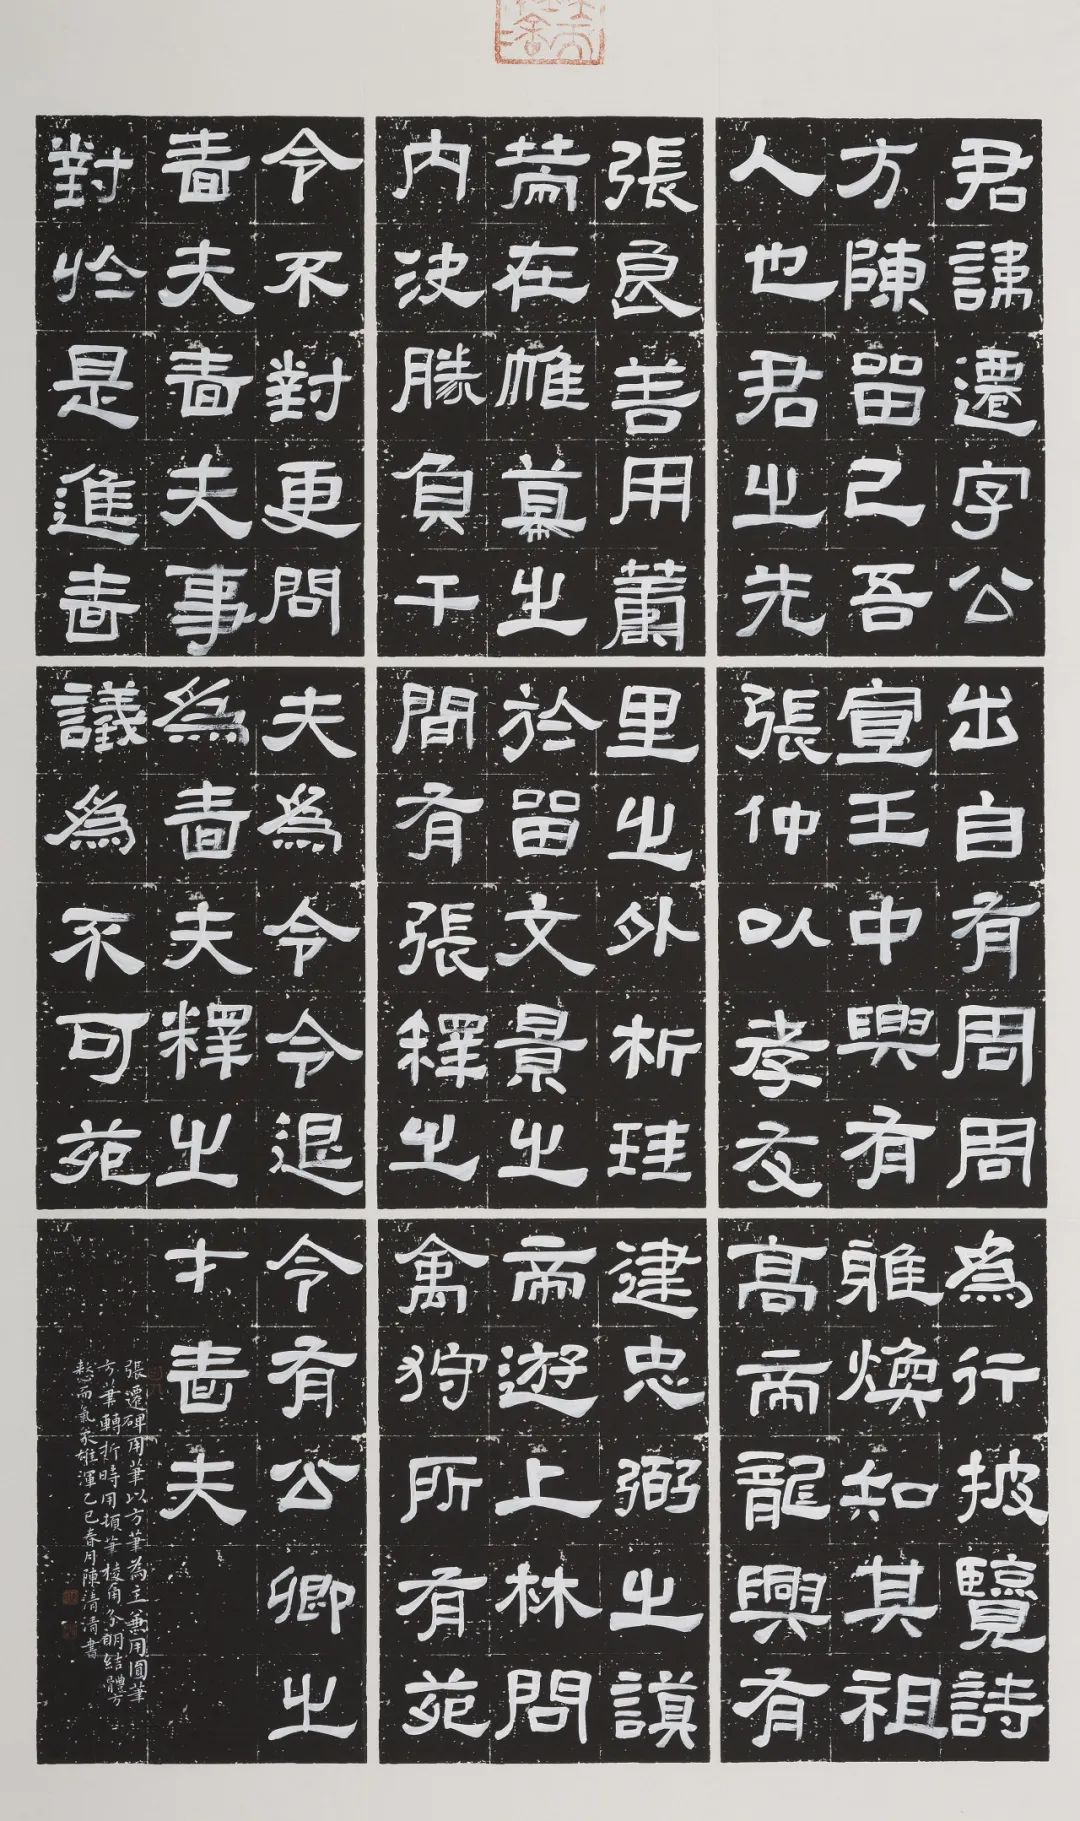 君諱遷字公
方陳留己吾
人也君之先
出自有周周
宣王中興有
張仲以孝友
為行披覽詩
雅煥知其祖
高帝龍興有
張良善用籌
策在帷幕之
內決勝負千
里之外析珪
於留文景之
間有張釋之
建忠弼之謨
帝遊上林問
禽狩所有苑
令不對更問
嗇夫嗇夫事
對於是進嗇
夫為令令退
為嗇夫釋之
議為不可苑
令有公卿之
才嗇夫
張遷碑用筆以方筆為主兼用圓筆
方筆轉折時用頓筆棱角分明結體方
整而氣象雄渾乙巳春月陳清清書